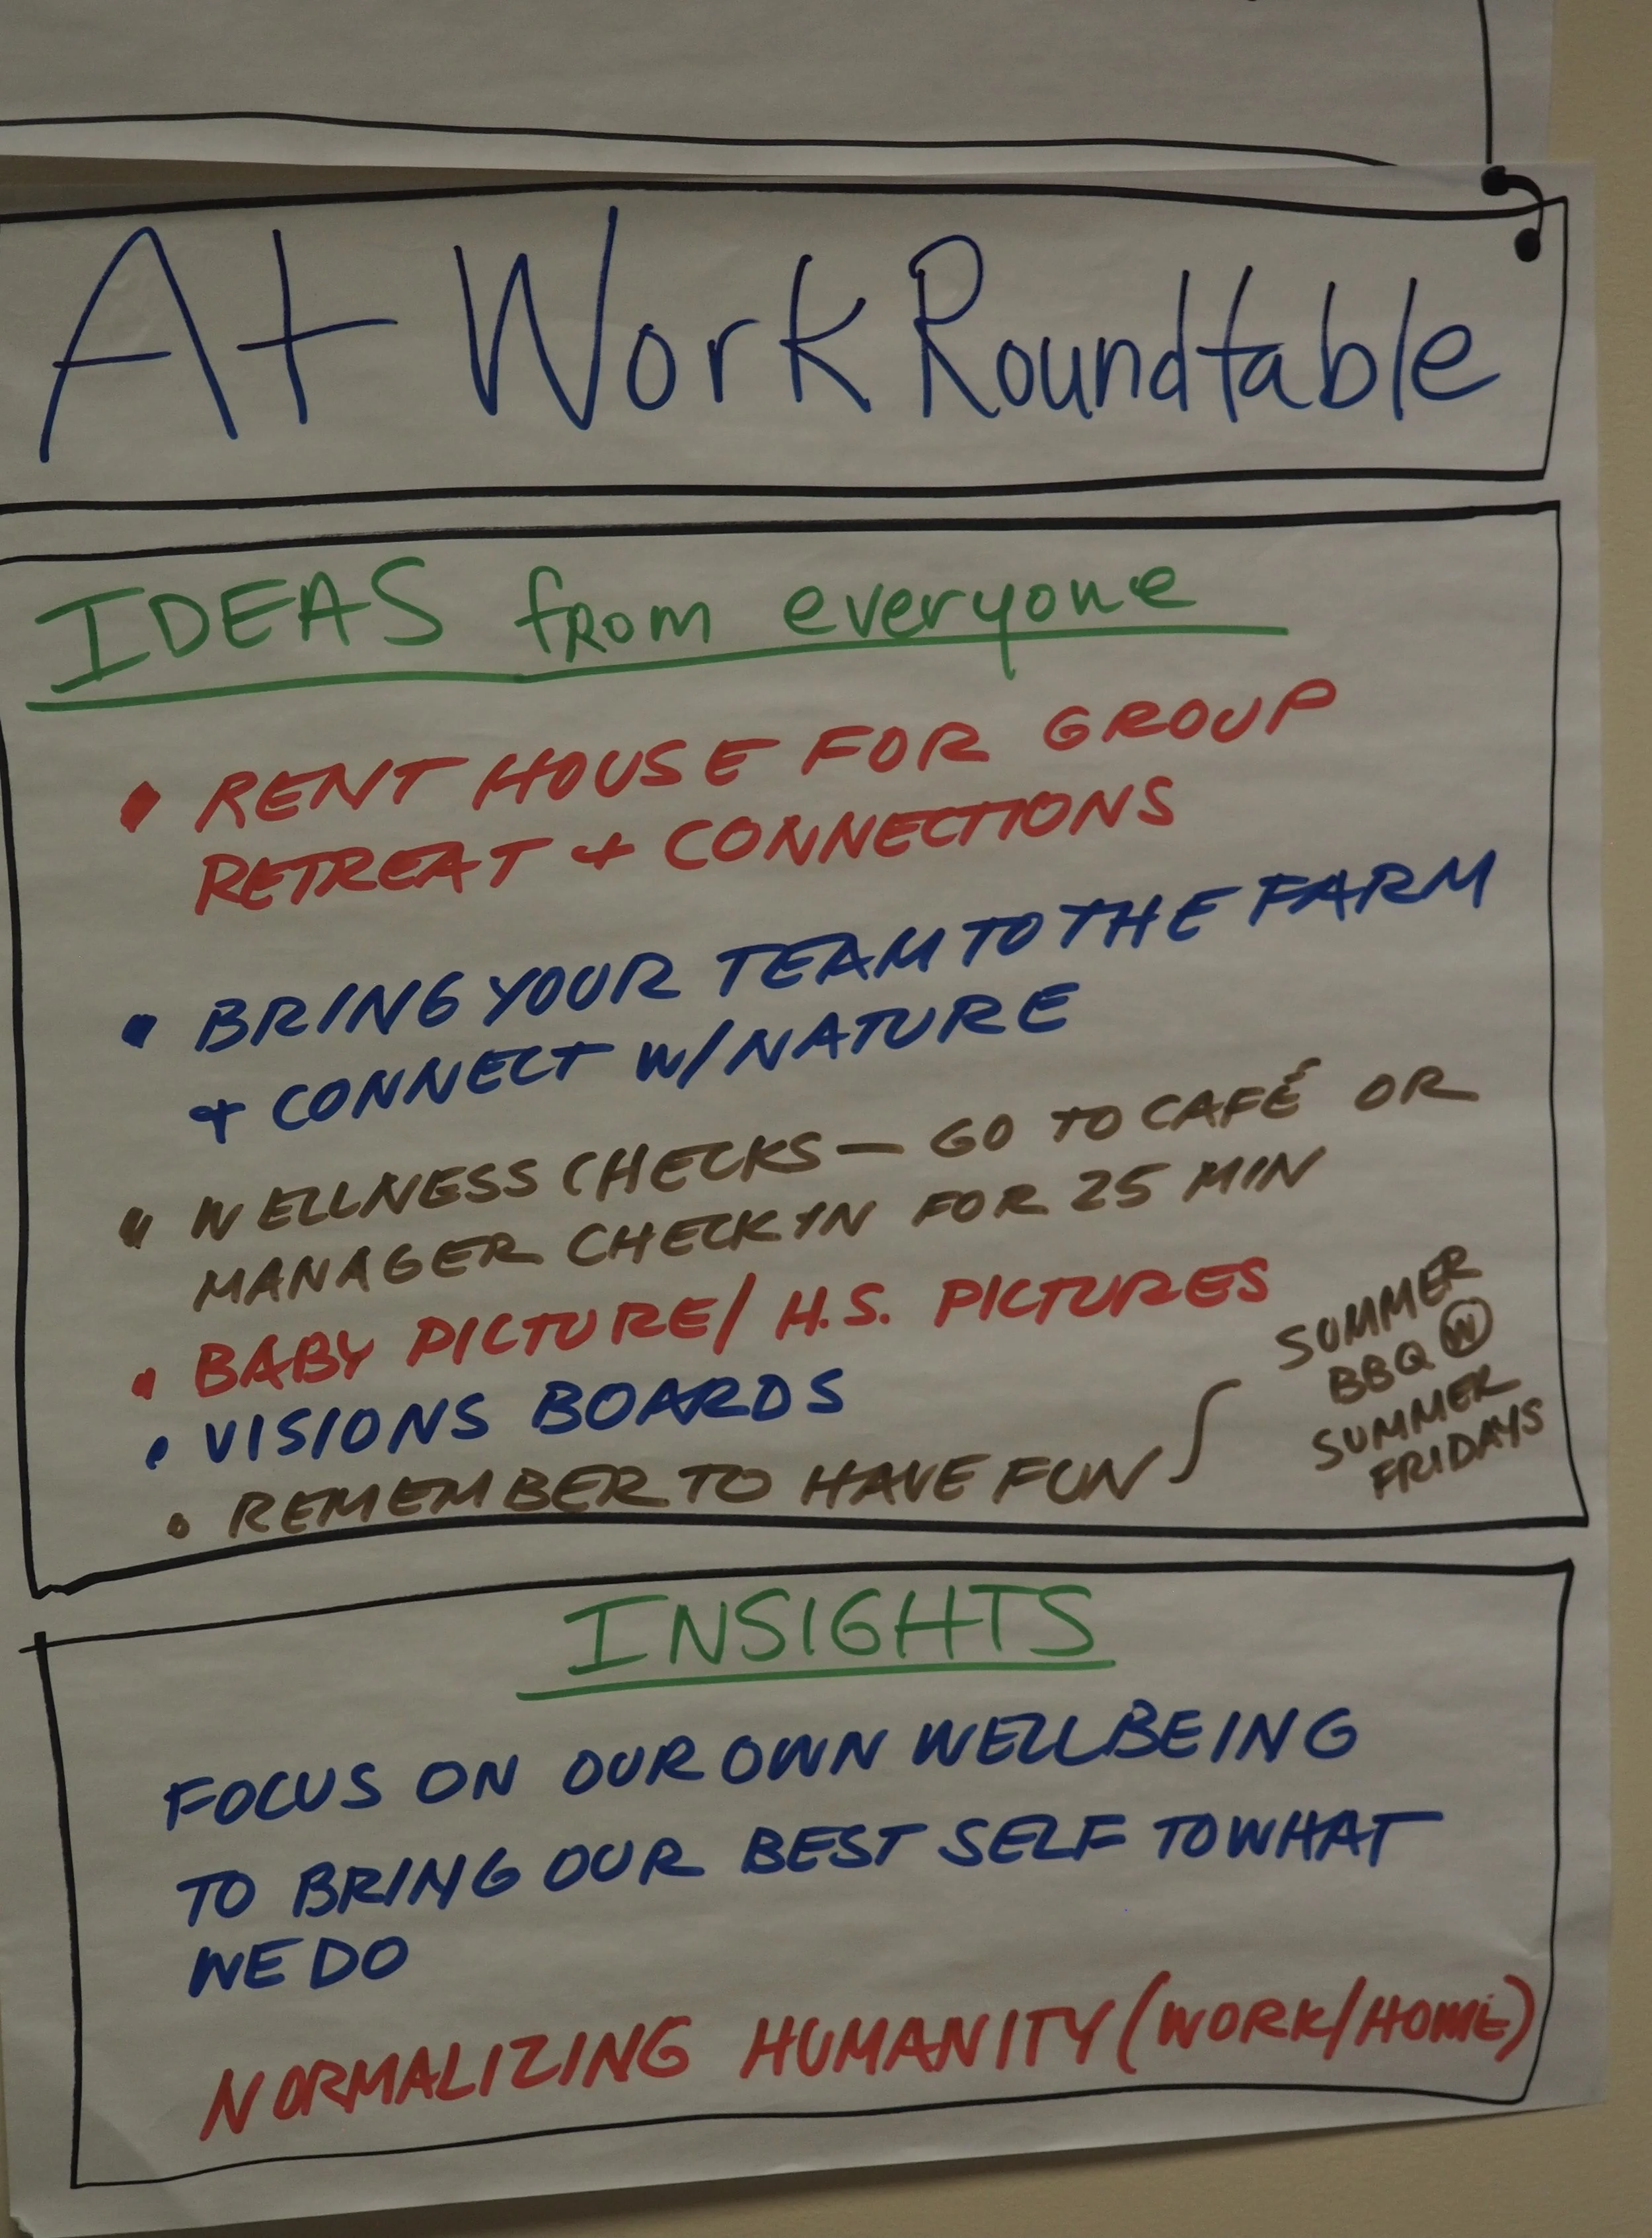 At Work Roundtable
IDEAS from everyone
• RENT HOUSE FOR GROUP
RETREAT + CONNECTIONS
• BRING YOUR TEAM TO THE FARM
+ CONNECT W/NATURE
• WELLNESS CHECKS — GO TO CAFÉ OR
MANAGER CHECK IN FOR 25 MIN
• BABY PICTURE/ H.S. PICTURES
• VISIONS BOARDS
• REMEMBER TO HAVE FUN
SUMMER
BBQ W
SUMMER
FRIDAYS
INSIGHTS
FOCUS ON OUR OWN WELLBEING
TO BRING OUR BEST SELF TO WHAT
WE DO
NORMALIZING HUMANITY (WORK/HOME)